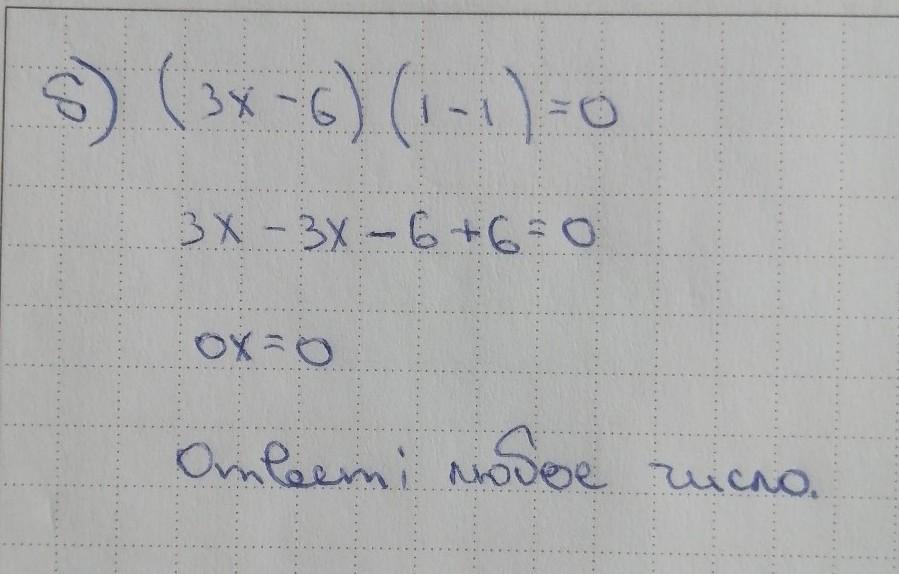 б) (3x - 6) (1 - 1) = 0
3x - 3x - 6 + 6 = 0
0x = 0
Ответ: любое число.